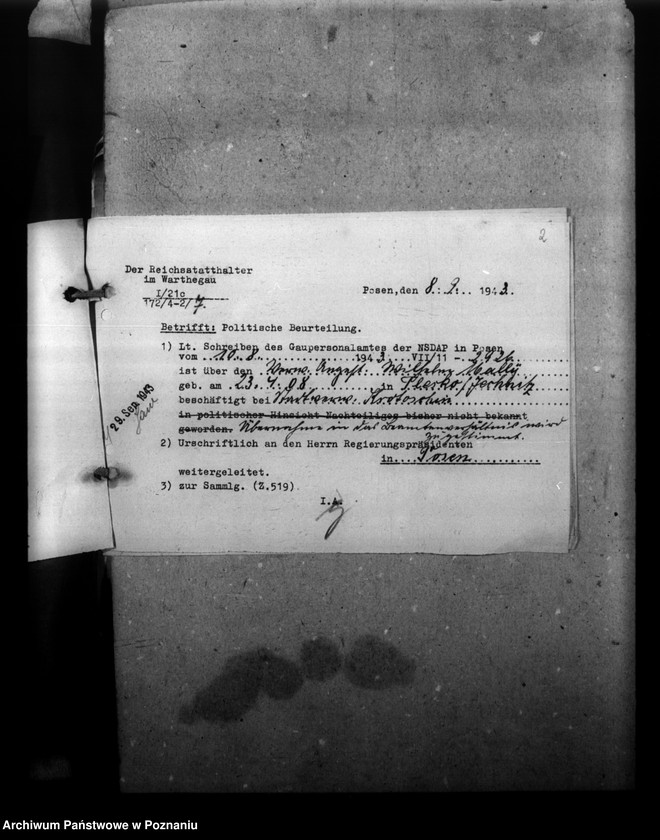 2
Der Reichsstatthalter
im Warthegau
I/21c
172/4-2/7
Posen, den 8. 9. 1943.
Betrifft: Politische Beurteilung.
1) Lt. Schreiben des Gaupersonalamtes der NSDAP in Posen
vom 10. 8. 1943 VII/11 - 2426
ist über den Verw. Angest. Wilhelm Mally
geb. am 23. 4. 98 in
beschäftigt bei Stadtverw. Krotoschin
in politischer Hinsicht Nachteiliges bisher nicht bekannt
geworden. Übernahme in das Beamtenverhältnis wird
zugestimmt.
2) Urschriftlich an den Herrn Regierungspräsidenten
in Posen
weitergeleitet.
3) zur Sammlg. (Z.519)
I.A.
29. Sep. 1943
Archiwum Państwowe w Poznaniu